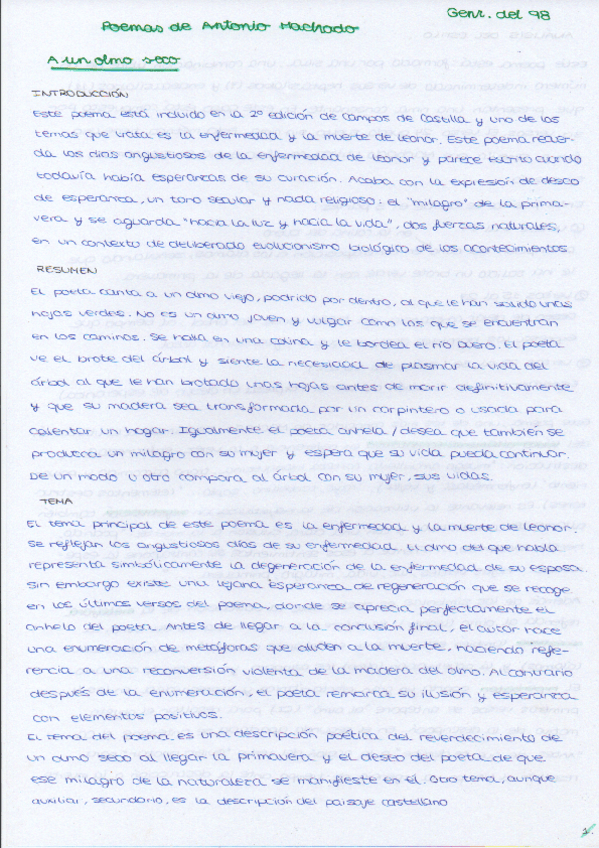 Genr. del 98
Poemas de Antonio Machado
A un olmo seco
INTRODUCCIÓN
Este poema está incluido en la 2º edición de Campos de Castilla y uno de los
temas que trata es la enfermedad y la muerte de Leonor. Este poema recuer-
da los días angustiosos de la enfermedad de Leonor y parece escrito cuando
todavía había esperanzas de su curación. Acaba con la expresión de deseo
de esperanza, un tono secular y nada religioso: el "milagro" de la prima-
vera y se aguarda "hacia la luz y hacia la vida", dos fuerzas naturales,
en un contexto de deliberado evolucionismo biológico de los acontecimientos.
RESUMEN
El poeta canta a un olmo viejo, podrido por dentro, al que le han salido unas
hojas verdes. No es un olmo joven y vulgar como los que se encuentran
en los caminos. Se halla en una colina y le bordea el río Duero. El poeta
ve el brote del árbol y siente la necesidad de plasmar la vida del
árbol al que le han brotado unas hojas antes de morir definitivamente
y que su madera sea transformada por un carpintero o usada para
calentar un hogar. Igualmente el poeta anhela/desea que también se
produzca un milagro con su mujer y espera que su vida pueda continuar.
De un modo u otro compara al árbol con su mujer, sus vidas.
TEMA
El tema principal de este poema es la enfermedad y la muerte de Leonor.
Se reflejan los angustiosos días de su enfermedad. El olmo del que habla
representa simbólicamente la degeneración de la enfermedad de su esposa.
Sin embargo existe una lejana esperanza de regeneración que se recoge
en los últimos versos del poema, donde se aprecia perfectamente el
anhelo del poeta. Antes de llegar a la conclusión final, el autor hace
una enumeración de metáforas que aluden a la muerte, haciendo refe-
rencia a una reconversión violenta de la madera del olmo. Al contrario
después de la enumeración, el poeta remarca su ilusión y esperanza
con elementos positivos.
El tema del poema, es una descripción poética del reverdecimiento de
un olmo seco al llegar la primavera y el deseo del poeta de que
ese milagro de la naturaleza se manifieste en él. Otro tema, aunque
auxiliar, secundario, es la descripción del paisaje castellano
1.